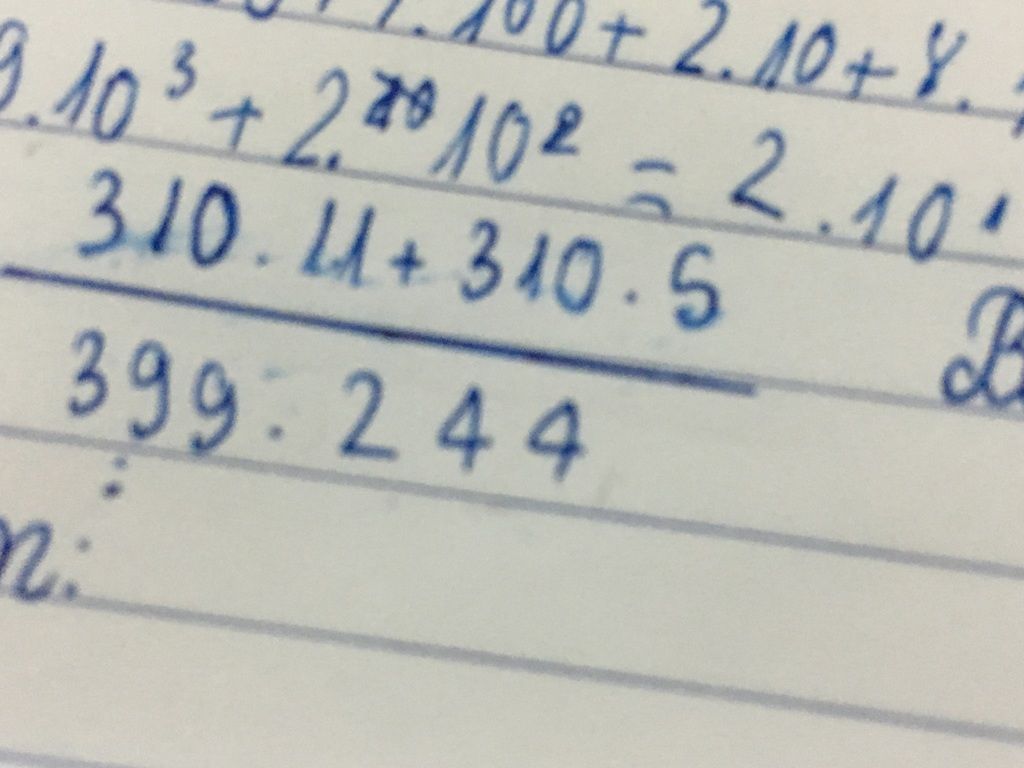 .100 + 2.10 + 8.
9.10³ + 2.10² = 2.10
310.11 + 310.5
399.244
B
n: